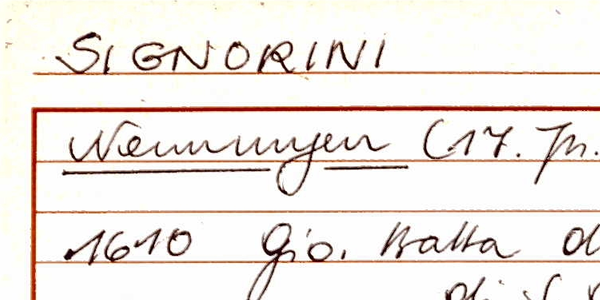 SIGNORINI
Nennungen (17. Jh.
1610 Gio. Batta d
di S